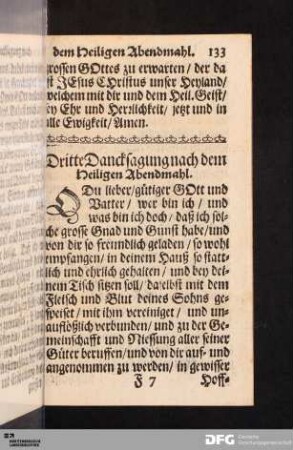 dem Heiligen Abendmahl. 133
grossen GOttes zu erwarten / der da
ist JEsus CHristus unser Heyland /
welchem mit dir und dem Heil. Geist /
sey Ehr und Herzlichkeit / jetzt und in
alle Ewigkeit / Amen.
Dritte Dancksagung nach dem
Heiligen Abendmahl.
O Du lieber / gütiger GOtt und
Vatter / wer bin ich / und
was bin ich doch / daß ich sol-
che grosse Gnad und Gunst habe / und
von dir so freundlich geladen / so wohl
empfangen / in deinem Hauß so statt-
lich und ehrlich gehalten / und bey dei-
nem Tisch sitzen soll / daselbst mit dem
Fleisch und Blut deines Sohns ge-
speiset / mit ihm vereiniget / und un-
auflößlich verbunden / und zu der Ge-
meinschafft und Niessung aller seiner
Güter beruffen / und von dir auf- und
angenommen zu werden / in gewisser
F 7 Hoff-
DFG Deutsche
Forschungsgemeinschaft